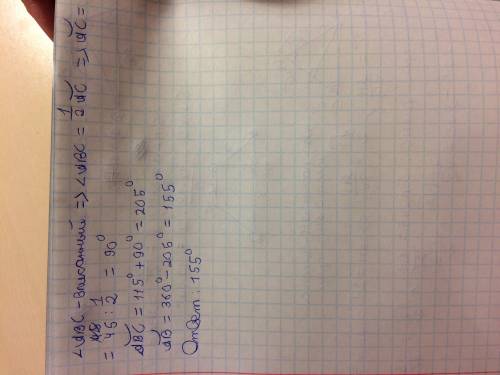 ∠ABC - вписанный => ∠ABC = 1/2 ᴗAC => ᴗAC =
= 45 : 1/2 = 90°
ᴗABC = 115° + 90° = 205°
ᴗAB = 360° - 205° = 155°
Ответ: 155°